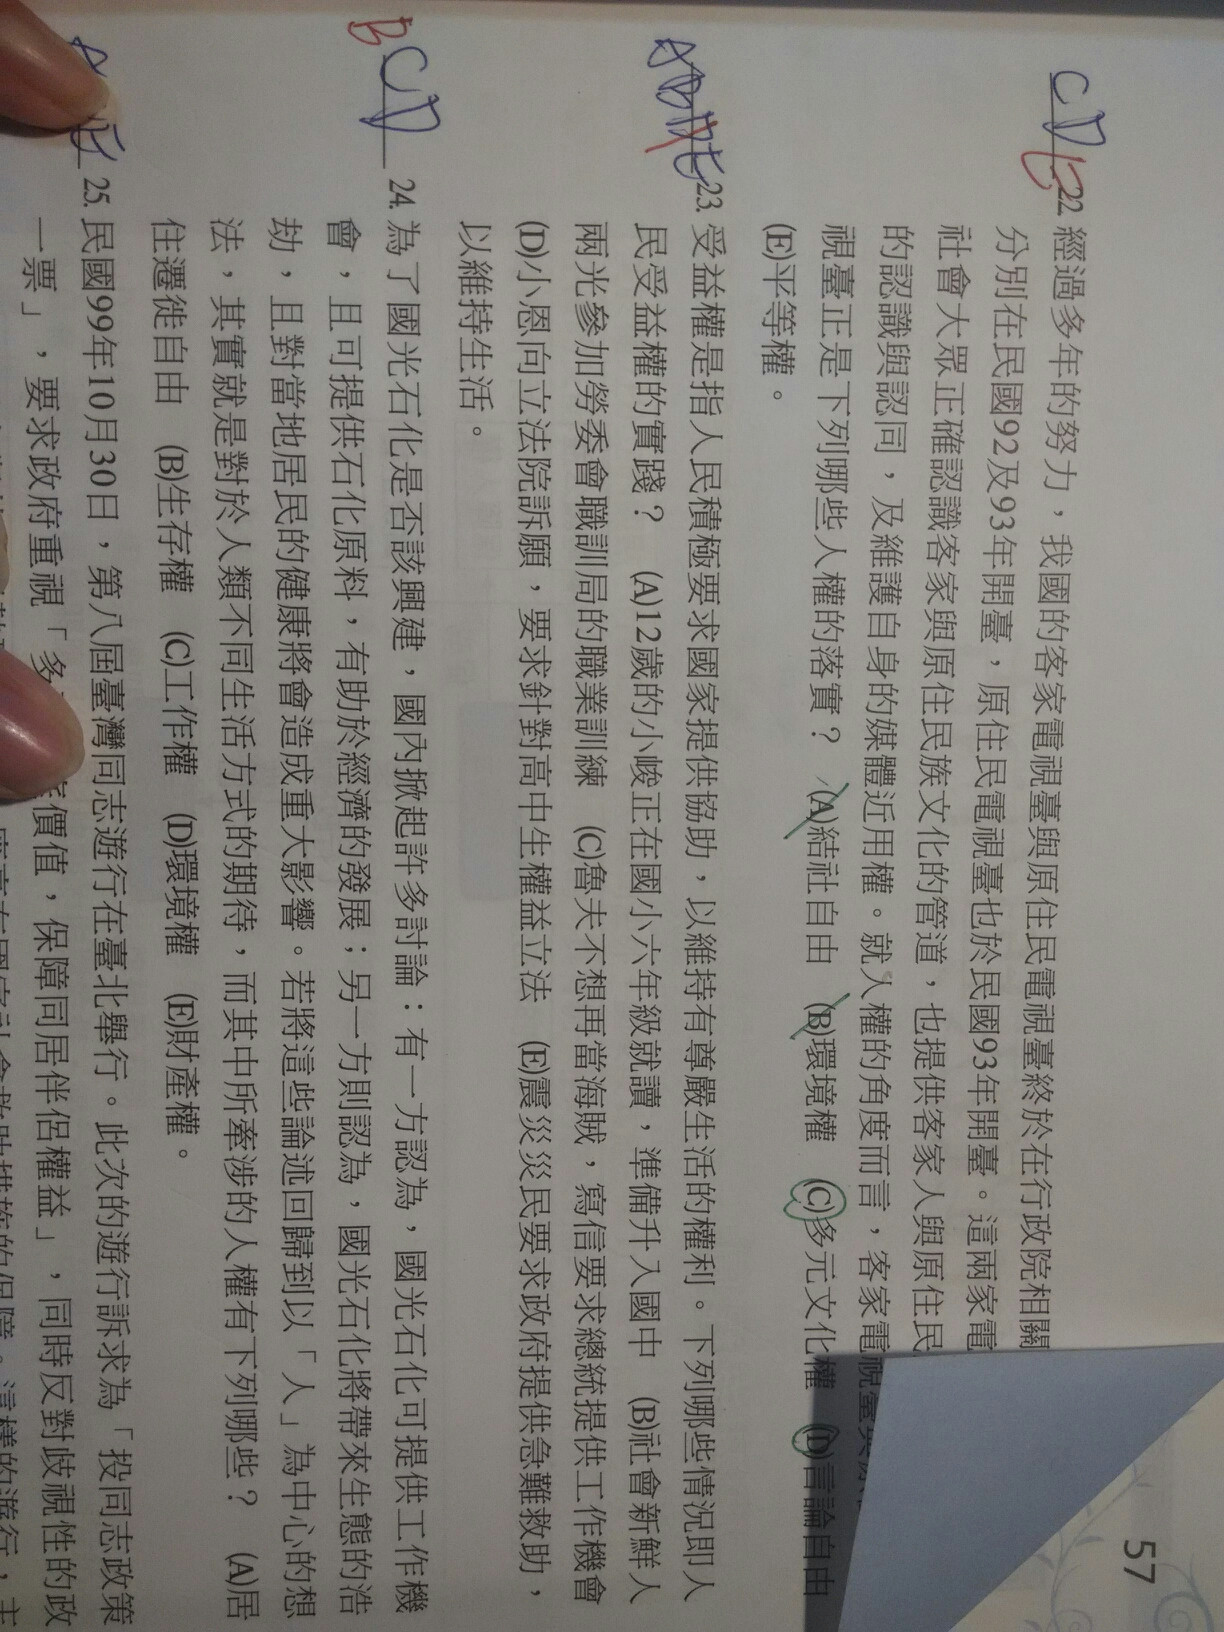 57
CDE 22. 經過多年的努力，我國的客家電視臺與原住民電視臺終於在行政院相關
分別在民國92及93年開臺，原住民電視臺也於民國93年開臺。這兩家電
社會大眾正確認識客家與原住民族文化的管道，也提供客家人與原住民
的認識與認同，及維護自身的媒體近用權。就人權的角度而言，客家電視臺
視臺正是下列哪些人權的落實？ (A)結社自由 (B)環境權 (C)多元文化權 (D)言論自由
(E)平等權。
23. 受益權是指人民積極要求國家提供協助，以維持有尊嚴生活的權利。下列哪些情況即人
民受益權的實踐？ (A)12歲的小峻正在國小六年級就讀，準備升入國中 (B)社會新鮮人
兩光參加勞委會職訓局的職業訓練 (C)魯夫不想再當海賊，寫信要求總統提供工作機會
(D)小恩向立法院訴願，要求針對高中生權益立法 (E)震災災民要求政府提供急難救助，
以維持生活。
BCD 24. 為了國光石化是否該興建，國內掀起許多討論：有一方認為，國光石化可提供工作機
會，且可提供石化原料，有助於經濟的發展；另一方則認為，國光石化將帶來生態的浩
劫，且對當地居民的健康將會造成重大影響。若將這些論述回歸到以「人」為中心的想
法，其實就是對於人類不同生活方式的期待，而其中所牽涉的人權有下列哪些？ (A)居
住遷徙自由 (B)生存權 (C)工作權 (D)環境權 (E)財產權。
25. 民國99年10月30日，第八屆臺灣同志遊行在臺北舉行。此次的遊行訴求為「投同志政策
一票」，要求政府重視「多 價值，保障同居伴侶權益」，同時反對歧視性的政